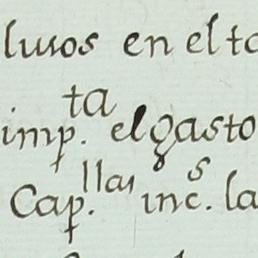 lusos en el to
imp.ta el gasto
Cap.llas inc.s la